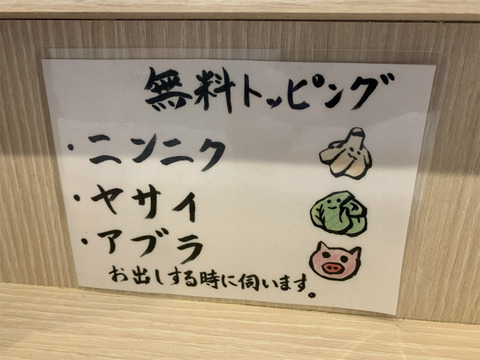 無料トッピング
・ニンニク
・ヤサイ
・アブラ
お出しする時に伺います。